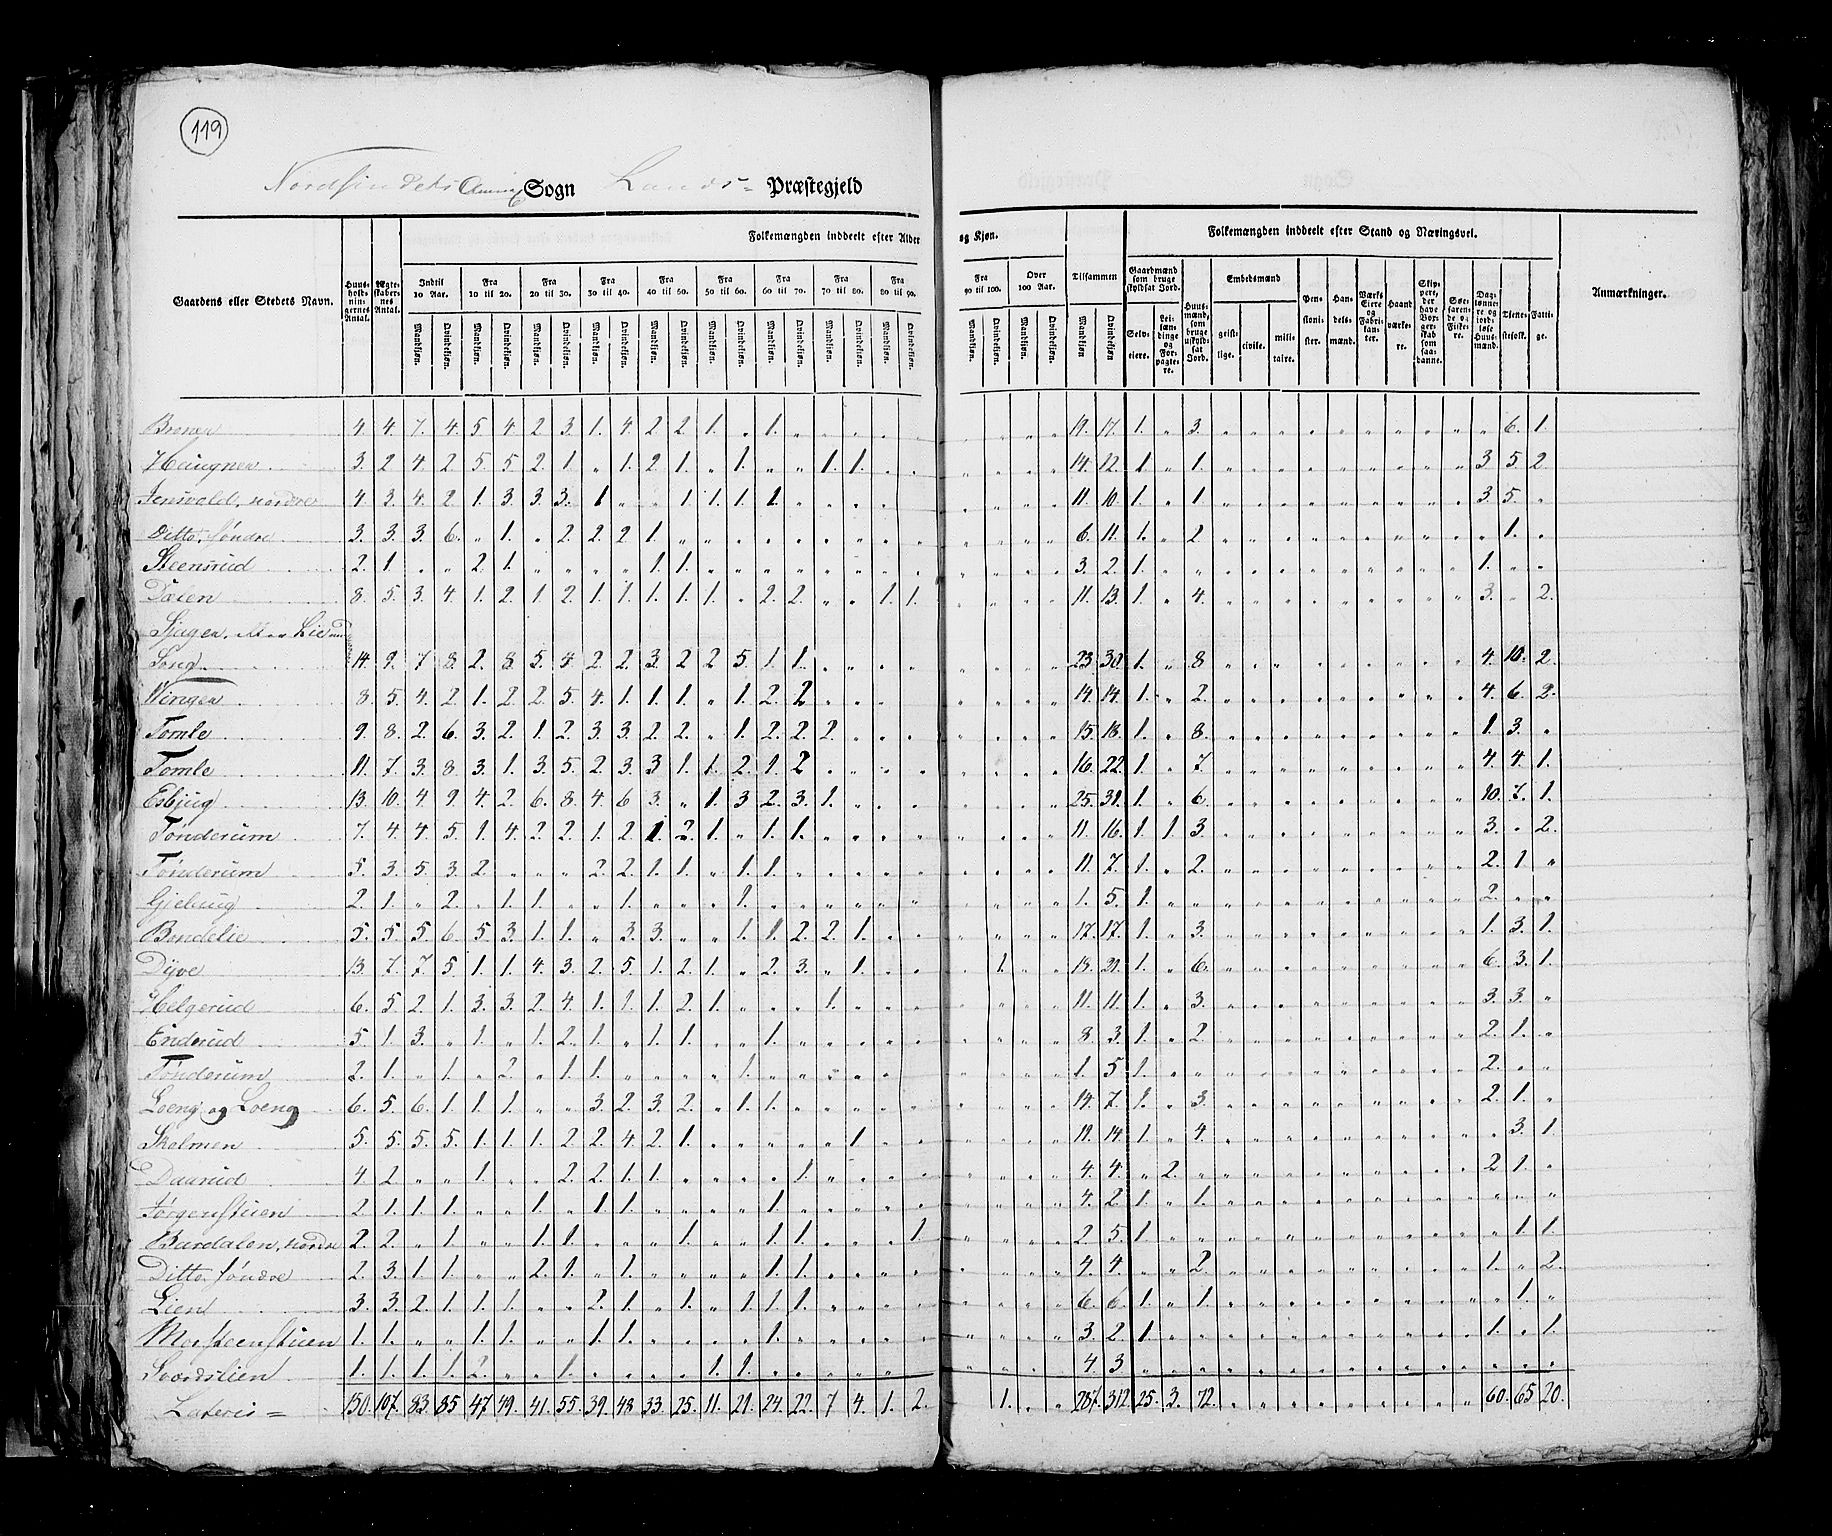 119
Nordsindets Annex Sogn Lands= Præstegjeld
Gaardens eller Stedets Navn. Huus-holdnin-gernes Antal. Ægte-skaber-nes Antal. Folkemængden inddeelt efter Alder og Kjøn. Folkemængden inddeelt efter Stand og Næringsvei. Anmærkninger.
Indtil 10 Aar. Fra 10 til 20. Fra 20 til 30. Fra 30 til 40. Fra 40 til 60. Fra 50 til 60. Fra 60 til 70. Fra 70 til 80. Fra 80 til 90. Fra 90 til 100. Over 100 Aar. Tilsammen
Mandkjøn. Qvindekjøn.
Gaardmænd som bruge skyldsat Jord. Selv-eiere. Lei-læn-dinge og For-pagte-re. Huus-mænd, som bruge uskyld-sat Jord. Embedsmænd geist-lige. civile. mili-taire. Pen-sioni-ster. Han-dels-mænd. Værks Eiere og Fabri-kan-ter. Haand værke-re. Skip-pere, der have Bor-ger-skab som saa-danne. Søe-farende og Fiske-re. Dag-lønne-re og jord-løse Huus-mænd. Tjene-stefolk. Fatti-ge.
4. 4. 7. 4. 5 4 2 3. 1. 4. 2 2 1. " 1. 19. 17. 1. " 3. 6. 1.
Haugner 3. 2 4. 2. 5. 5 2. 1. " 1. 2 1. " 1. " " 1. 1. 14. 12. 1 " 1. 3 5. 2
nordre 4 3. 4. 2 1. 3. 3. 3. 1 " " 1. 1. 1. 1. 11. 10. 1. " 1 3. 5. "
Ditto, søndre 3. 3. 3 6. " 1. " 2. 2 2 1. 6. 11. 1. " 2 1.
Steensrud 2. 1 " " 2 1. " " " " 1. 1. 3. 2. 1. 1.
Dælen 8. 5. 3. 4. 1. 2. 1. 2. 1 1. 1. 1. 1. " 2. 2. " " 1. 1. 11. 13. 1. " 4. 3. " 2.
14. 9. 7 8. 2. 8. 5. 4 2 2. 3. 2 2 5. 1. 1. 23. 30. 1. " 8 4. 10. 2.
Wingen 8. 5. 4. 2 1. 2 2 5. 4. 1. 1. 1. " 1. 2. 2 14. 14. 1. " 2. 4. 6. 2.
Tomle 9. 8. 2. 6. 3. 2. 1. 2. 3. 3. 2 2. " 1. 2. 2 2. 15. 18. 1. " 8. 1. 3. "
Tomle 11. 7. 3. 8. 3. 1. 3. 5. 2. 3. 3 1. 1. 2. 1. 2 16. 22. 1. " 7 4. 4. 1.
Esbjug 13. 10. 4 9. 4. 2. 6. 8. 4. 6 3. " 1. 3 2. 3. 1. 25. 31. 1. " 6. 10. 7. 1.
Tønderum 7. 4. 4. 5. 1. 4. 2. 2. 1. 2. 1. 2. 1. " 1. 1. 11. 16. 1. 1. 3. 3. " 2.
Tønderum 5. 3. 5. 3. 2. " " " 2. 2. 1. 1. " 1. 1. 11. 7. 1. " 2. 2. 1 "
2. 1. " 2. " 1. 1. " " 1. " " " 1. 1. 5. 1. 2. " "
Bendelie 5. 5. 5. 6. 5 3. 1. 1. " 3. 3. " " 1. 1. 2. 2. 1. 17. 17. 1. " 3. 1. 3. 1.
Dyve 13. 7. 7. 5 1. 1. 4. 3. 2. 5. 1. 2. 1. " 2. 3. " 1. 1. 18. 21. 1. " 6. 6. 3. 1.
Helgerud 6. 5. 2. 1. 3. 3. 2. 4. 1. 1. 1. 2. 1. " " " 1. 11. 11. 1. " 3. 3. 3. "
Enderud 5. 1. 3. " 1. " 1. 2. 1. " 1. 1. " " 1. 8 3. 1. " 2. 2. 1. "
Tønderum 2. 1. " 1. " 2. " 1. 1. " " " " 1. 1. 5 1. 2. " "
Loeng og Loeng 6. 5. 6. 1. 1. 1. " " 3. 2. 3. 2. " 1. 1. 14. 7. 1. " 3. 2. 1. "
Skolmen 5. 5. 5. 5. 1. 1. 1. 2 2. 4. 2. 1. " " " " " 1. 19. 14. 1. " 4. 3. 1.
Daurud 4. 2 " " 1. " " 2. 2. 1. 1. " " " " 1. 4. 4. " 2. 2 1. "
Jørgenstuen 2. 1. 1. 1. " " 1. " 1. 1. " " " " 1. 4. 2 1. " 1.
Bardalen, nordre 2. 2. " 1. " " 1. 1. " " " 1. " " 1. 1. 2 5. 1 1. 1.
Ditto, søndre 2. 3. 1. 1. " " 2. 1. " 1. " " " " 1. 1. 4. 4. " " 2. 1. " 2.
Lien 3. 3. 2. 1. 1. 1. " " 2. 1. " 1. " 1. 1. 1. 6. 6. 1. " 1. 1. "
1. 1. " " 1. 1. " " 1. 1. " " " " 1. 3. 2. 1. 1. " 1.
Sværdslien 1. 1. 1. 1. 2. " " 1. " " " " 1. 1. 4. 3
Lateris = 150. 107. 83. 85. 47 49. 41. 55. 39. 48 33. 25. 11. 21. 24. 22. 7 4. 1. 2. 1. 287. 312 25. 3. 72. 60. 65 20.